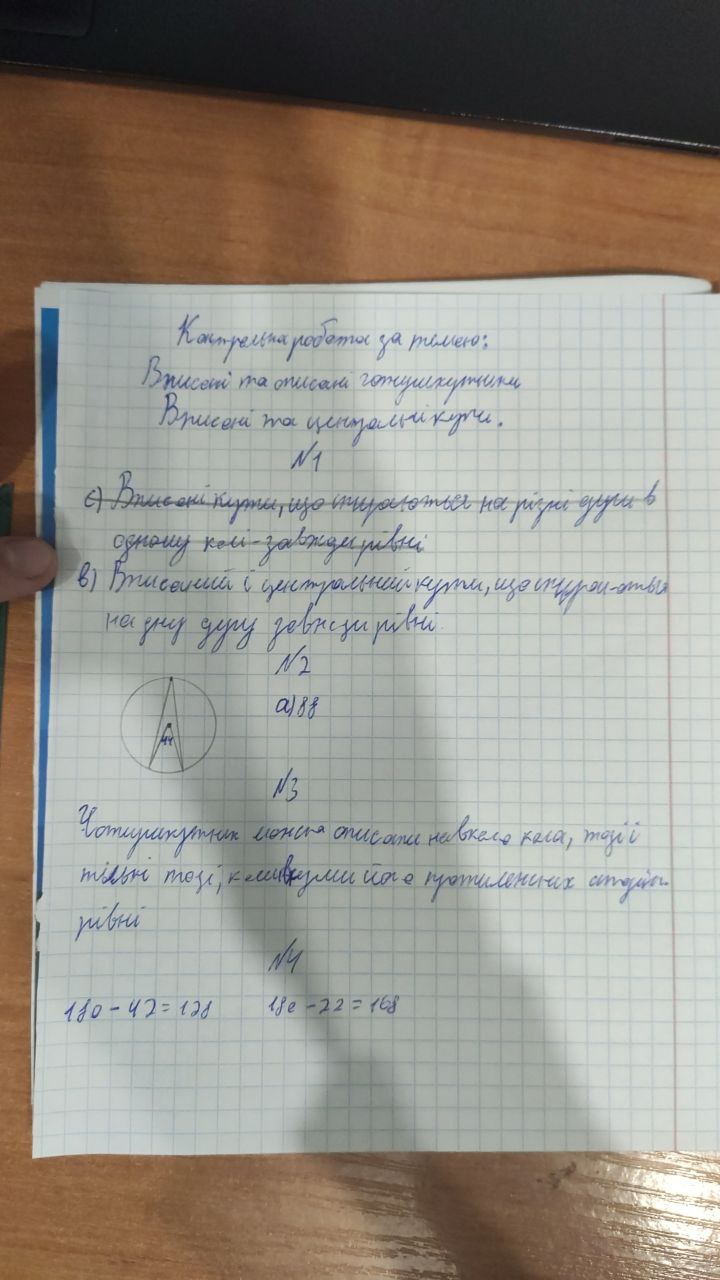 Контрольна робота за темою:
Вписані та описані чотирикутники
Вписані та центральні кути.
N1
с) Вписані кути, що спираються на різні дуги в
одному колі - завжди рівні
в) Вписаний і центральний кути, що спира-оться
на дну дугу завжди рівні.
N2
а) 88
44
N3
Чотирикутник можна описати навколо кола, тоді і
тільні тоді, коли суми його протилежних сторін
рівні
N4
180 - 42 = 128 180 - 22 = 168